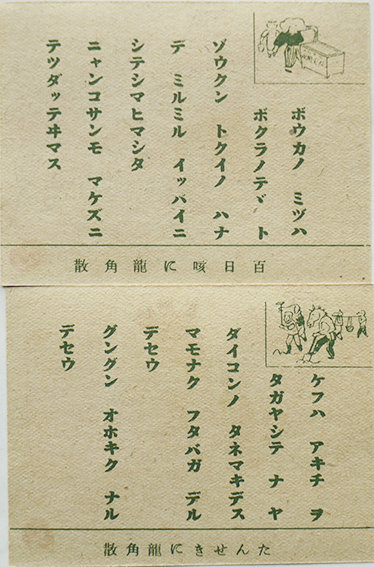 ボウカノ ミヅハ
ボクラノテヾ ト
ゾウクン トクイノ ハナ
デ ミルミル イッパイニ
シテシマヒマシタ
ニャンコサンモ マケズニ
テツダッテヰマス
散角龍に咳日百
ケフハ アキチ ヲ
タガヤシテ ナ ヤ
ダイコンノ タネマキデス
マモナク フタバガ デル
デセウ
グングン オホキク ナル
デセウ
散角龍にきせんた